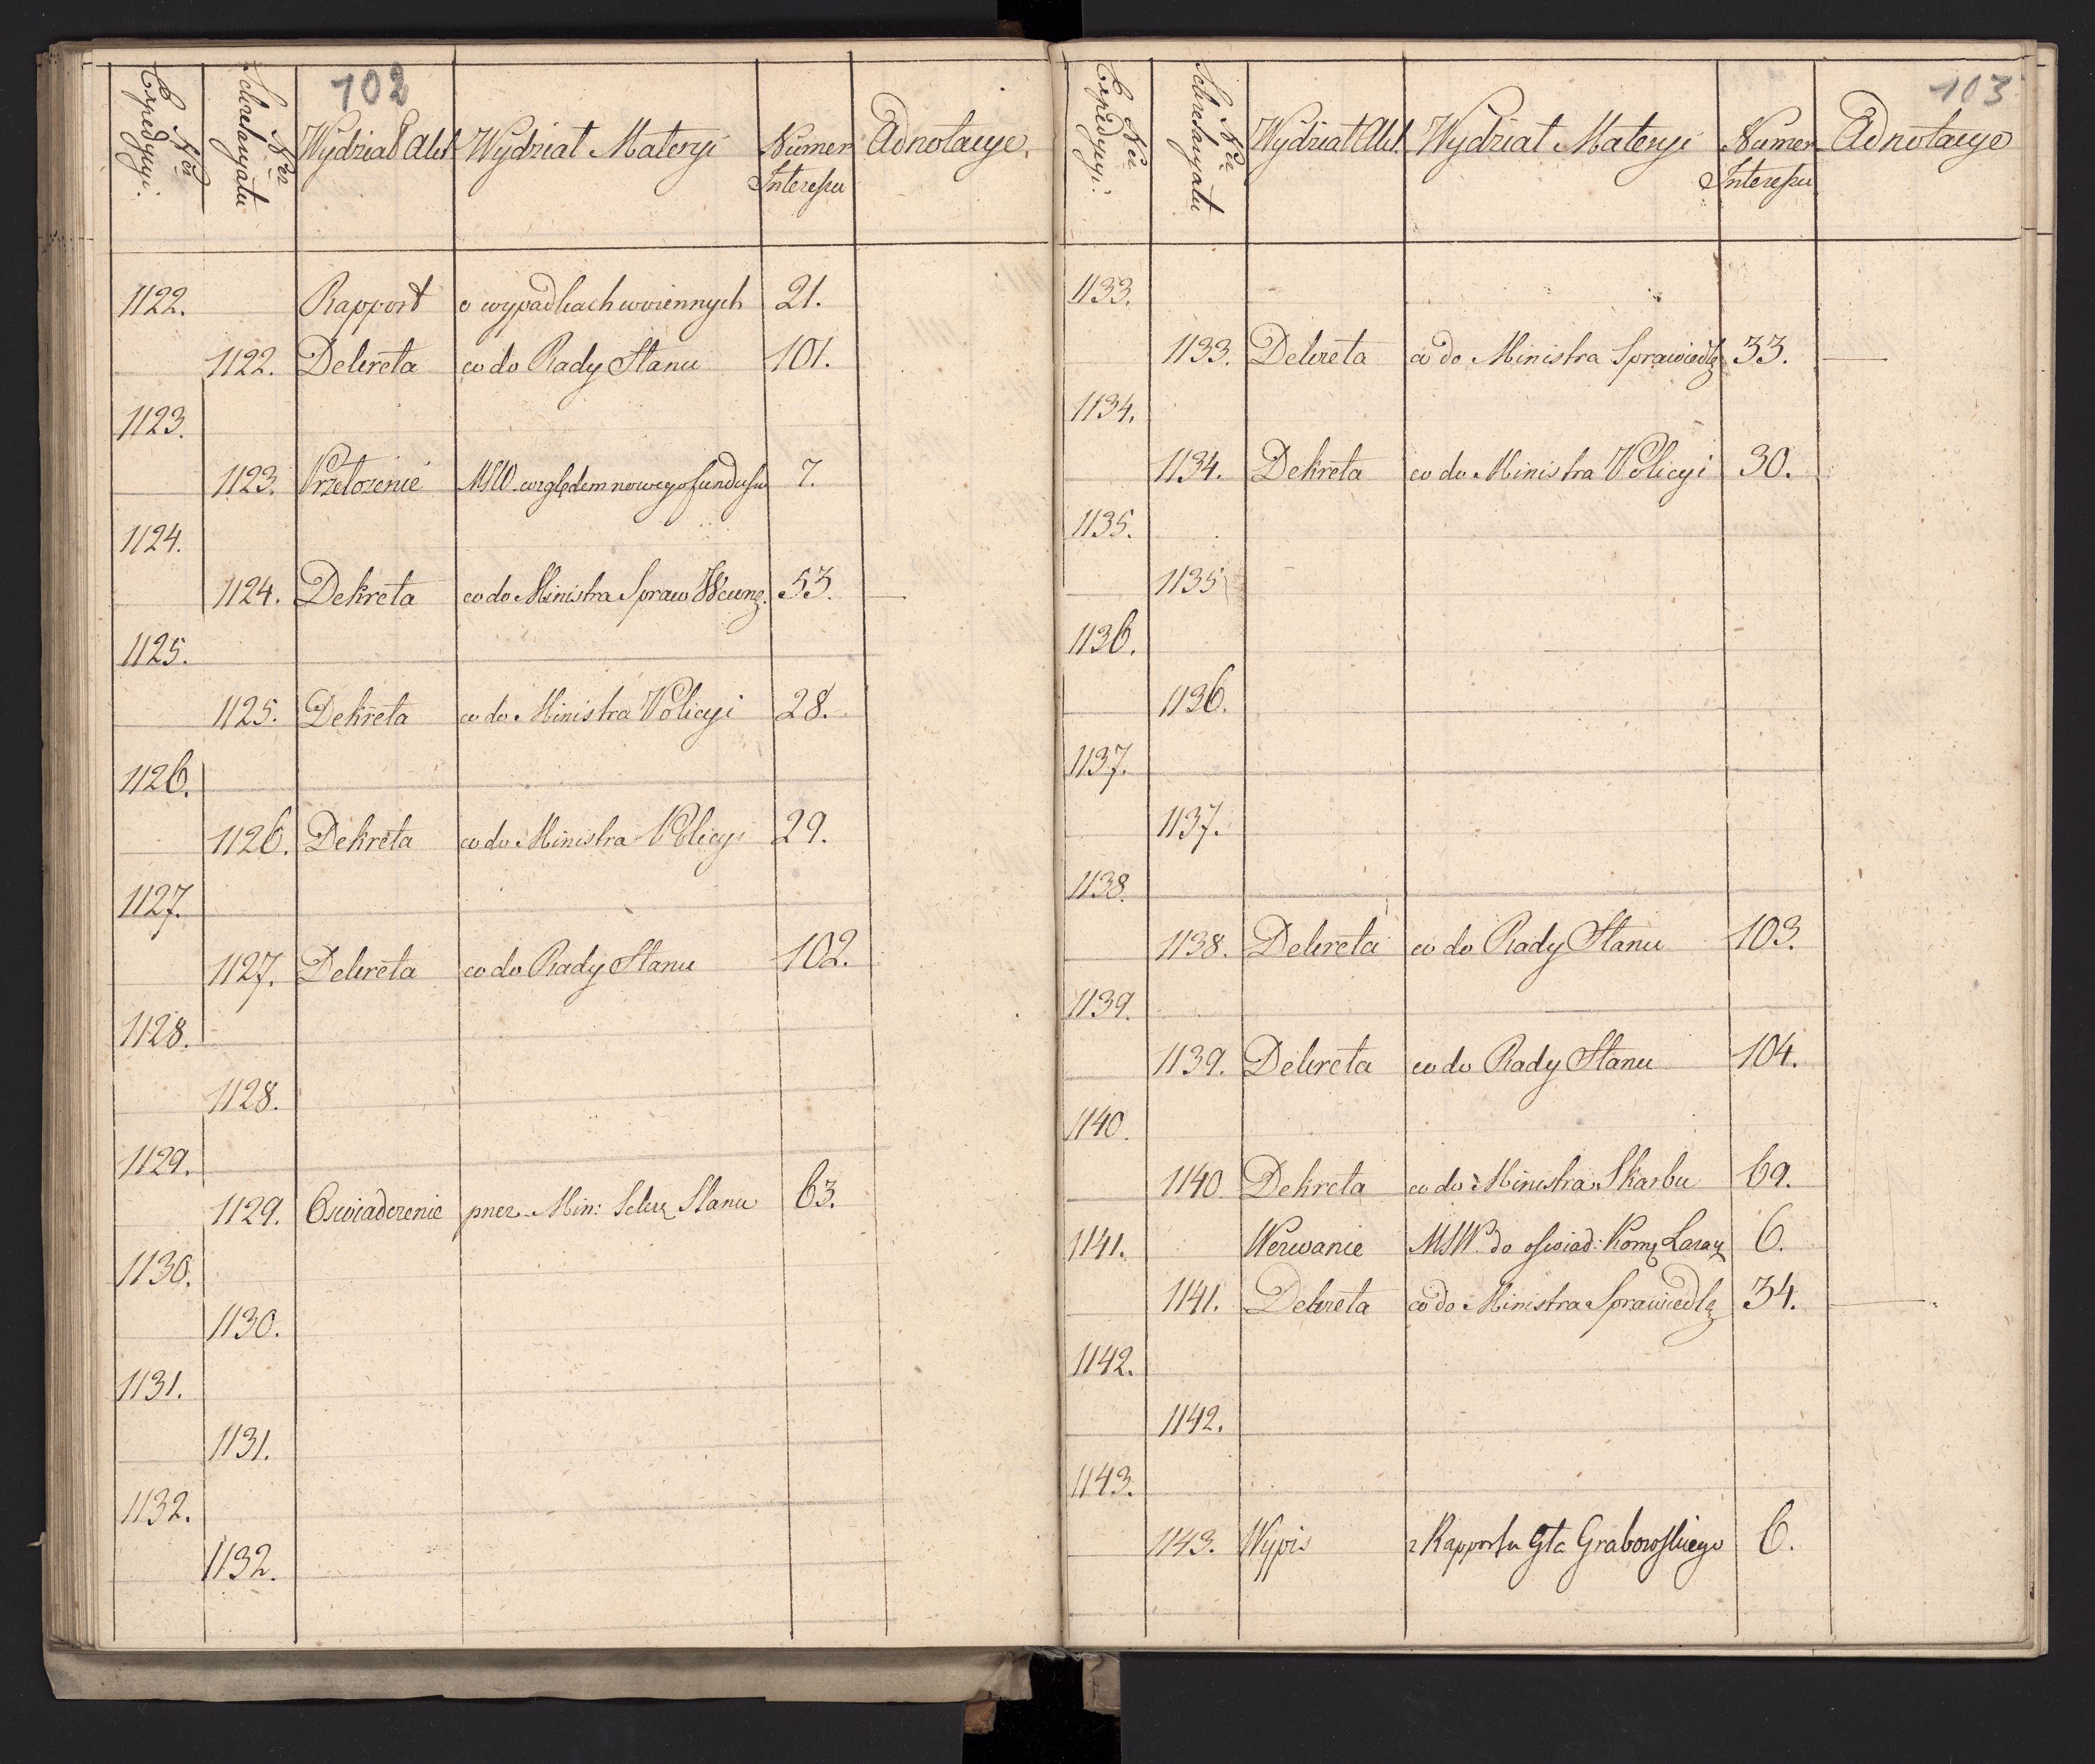 102
Ner Expedycyi.
Ner Sekretaryatu
Wydział Akt
Wydział Materyi
Numer Interessu
Adnotacye.
1122. Rapport o wypadkach woiennych 21.
1122. Dekreta co do Rady Stanu 101.
1123.
1123. Przełożenie MSW. względem nowego funduszu 7.
1124.
1124. Dekreta co do Ministra Spraw Wewnę. 53.
1125.
1125. Dekreta co do Ministra Policyi 28.
1126.
1126. Dekreta co do Ministra Policyi 29.
1127.
1127. Dekreta co do Rady Stanu 102.
1128.
1128.
1129.
1129. Oswiadczenie przez Min: Sekr. Stanu 63.
1130.
1130.
1131.
1131.
1132.
1132.
103
Ner Expedycyi.
Ner Sekretaryatu
Wydział Akt.
Wydział Materyi
Numer Interessu
Adnotacye
1133.
1133. Dekreta co do Ministra Sprawiedl. 33.
1134.
1134. Dekreta co do Ministra Policyi 30.
1135.
1135
1136.
1136.
1137.
1137.
1138.
1138. Dekreta co do Rady Stanu 103.
1139.
1139. Dekreta co do Rady Stanu 104.
1140.
1140. Dekreta co do Ministra Skarbu 69.
1141. Wezwanie MSW. do oswiad: 6.
1141. Dekreta co do Ministra Sprawiedl. 34.
1142.
1142.
1143.
1143. Wypis z Rapportu Gła Grabowskiego 6.